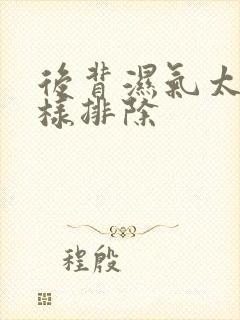 後背濕氣太
樣排除
程殷